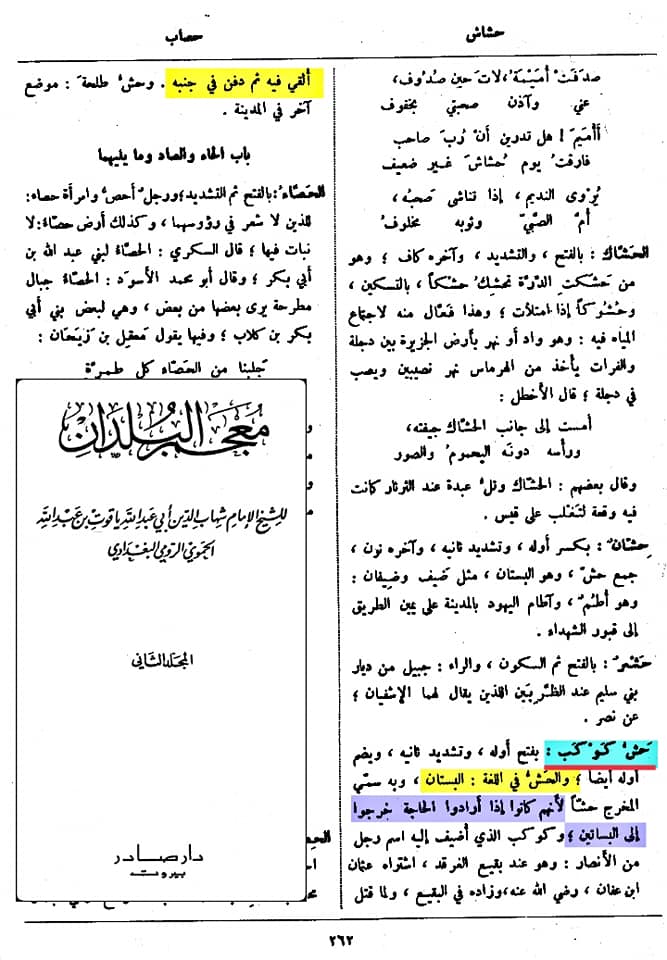 حشاش
حصاب
صدفت أميمة، لات حين صدوف،
عني وآذن صحبتي بخفوف
أأميم! هل تدرين أن رب صاحب
فارقت يوم حشاش غير ضعيف
يروى النديم، إذا تناشى صحبه،
أم الصبي وثوبه مخلوف
الحشاك: بالفتح، والتشديد، وآخره كاف؛ وهو
من حشكت الدرة تحشك حشكاً، بالتسكين،
وحشوكاً إذا امتلأت؛ وهذا فعال منه لاجتماع
المياه فيه: وهو واد أو نهر بأرض الجزيرة بين دجلة
والفرات يأخذ من الهرماس نهر نصيبين ويصب
في دجلة؛ قال الأخطل:
أمست إلى جانب الحشاك جيفته،
ورأسه دونه اليحموم والصور
وقال بعضهم: الحشاك وتل عبدة عند الثرثار كانت
فيه وقعة لتغلب على قيس.
حشان: بكسر أوله، وتشديد ثانيه، وآخره نون،
جمع حش، وهو البستان، مثل ضيف وضيفان:
وهو أطم، وآطام اليهود بالمدينة على يمين الطريق
إلى قبور الشهداء.
حشر: بالفتح ثم السكون، والراء: جبيل من ديار
بني سليم عند الظربين اللذين يقال لهما الإشفيان؛
عن نصر.
حش كوكب: بفتح أوله، وتشديد ثانيه، ويضم
أوله أيضاً؛ والحش في اللغة: البستان، وبه سمي
المخرج حشاً لأنهم كانوا إذا أرادوا الحاجة خرجوا
إلى البساتين؛ وكوكب الذي أضيف إليه اسم رجل
من الأنصار: وهو عند بقيع الغرقد، اشتراه عثمان
ابن عفان، رضي الله عنه، وزاده في البقيع، ولما قتل
ألقي فيه ثم دفن في جنبه. وحش طلحة: موضع
آخر في المدينة.
باب الحاء والصاد وما يليهما
الحصاء: بالفتح ثم التشديد؛ ورجل أحص وامرأة حصاء:
للذين لا شعر في رؤوسهما، وكذلك أرض حصاء: لا
نبات فيها؛ قال السكري: الحصاء لبني عبد الله بن
أبي بكر؛ وقال أبو محمد الأسود: الحصاء جبال
مطرحة يرى بعضها من بعض، وهي لبعض بني أبي
بكر بن كلاب؛ وفيها يقول معقل بن زيحان:
جلبنا من الحصاء كل طمرة
معجم البلدان
للشيخ الإمام شهاب الدين أبي عبد الله ياقوت بن عبد الله
الحموي الرومي البغدادي
المجلد الثاني
دار صادر
بيروت
٢٦٢